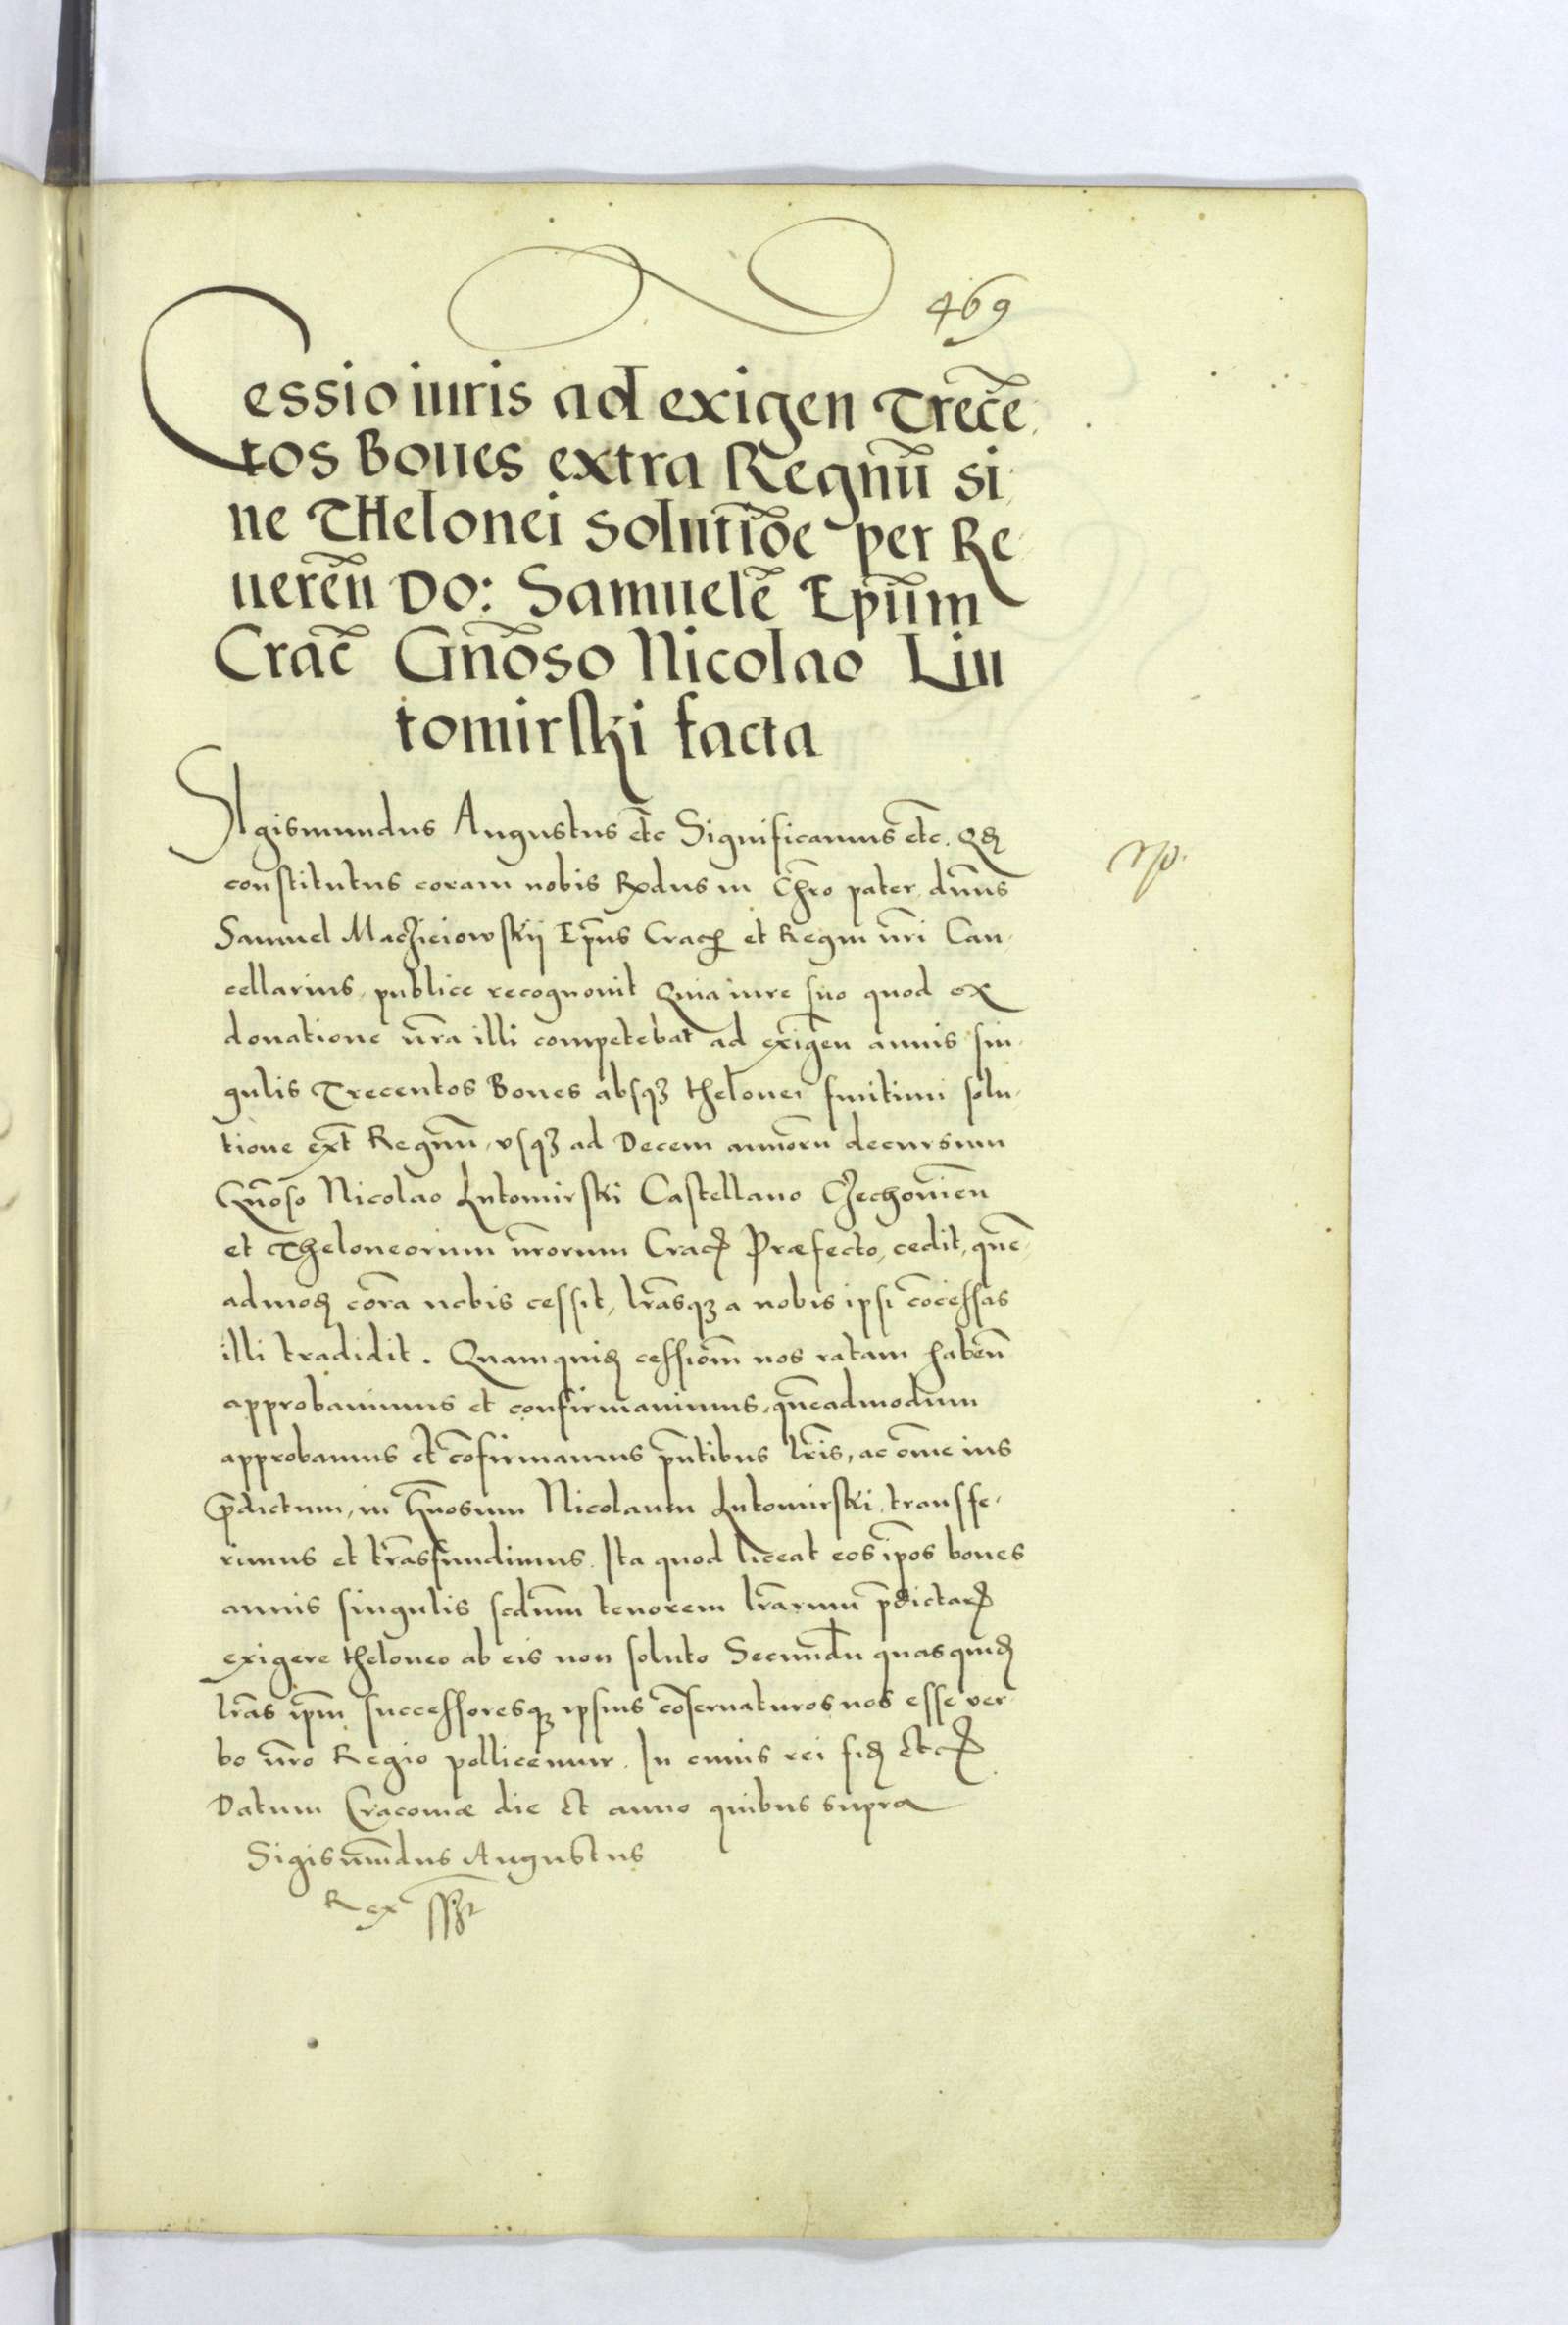 469
Cessio iuris ad exigen Trecẽ
tos Boues extra Regnũ si
ne THelonei solutiõe per Re
uerẽn Do: Samuelẽ Epũm
Crac̃ Gnõso Nicolao Liu
tomirski facta
SIgismundus Augustus etc̃ Significamus etc̃. Qđ
constitutus coram nobis Rꝺdus in Chr̃o pater dnũs
Samuel Macziciowskij Ep̃us Cracꝭ et Regni nr̃i Can
cellarius, publice recognouit Quia iure suo quod ex
donatione nr̃a illi competebat ad exigẽn annis sin
gulis Trecentos Boues absqꝫ thelonei finitimi solu
tione ext̃ Regnũ, vsqꝫ ad Decem annorũ decursum
Gnõso Nicolao Lutomirski Castellano Czechouieñ
et Theloneorum nr̃orum Cracꝭ Præfecto, cedit, quẽ
admođ corã nobis cessit, lr̃asqꝫ a nobis ipsi cõcessas
illi tradidit. Quamquiđ cessioñm nos ratam habeñ
approbauimus et confirmauimus, quẽadmodum
approbamus et cõfirmamus pñtibus lr̃is, ac om̃e ius
p̃dictum, in Gnõsum Nicolaum Lutomirski, transfe
rimus et trãsfundimus. Ita quod liceat eos ip̃os boues
annis singulis scdũm tenorem lr̃arum p̃dictarꝭ
exigere theloneo ab eis non soluto Secundũ quasquiđ
lr̃as ip̃m successoresqꝫ ipsius cõseruaturos nos esse ver
bo nr̃o Regio pollicemur. In cuius rei fiđ etcꝭ
Datum Cracouiæ die et anno quibus supra
Sigismũdus Augustus
Rex sszt